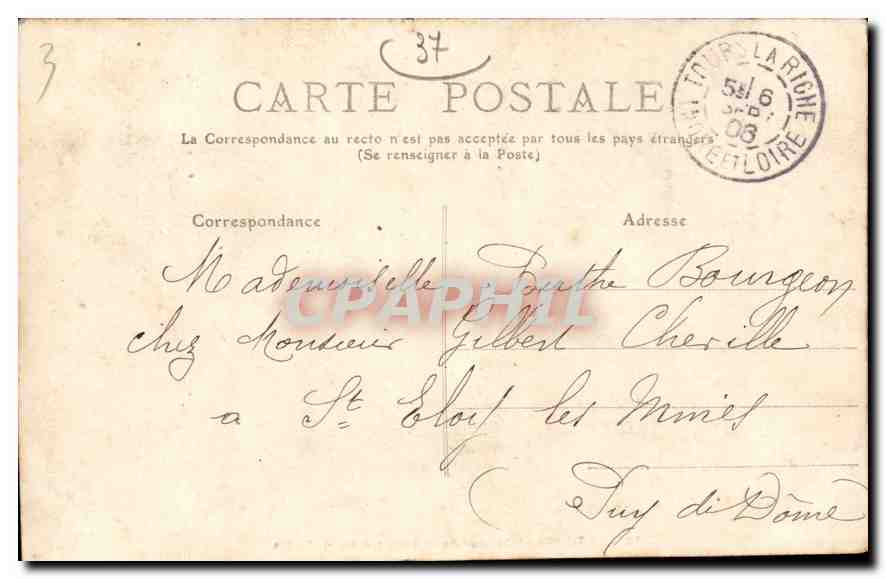 3
37
CARTE POSTALE
La Correspondance au recto n'est pas acceptée par tous les pays étrangers
(Se renseigner à la Poste)
TOURS LA RICHE
6
06
ET LOIRE
Correspondance
Adresse
Mademoiselle Berthe Bourgeon
CPAPHIL
chez Monsieur Gilbert Cheville
a St Eloy les Mines
(Puy di Dôme